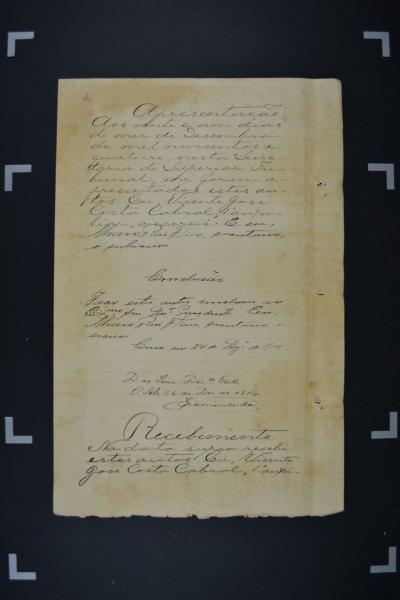 Apresentação
Aos vinte e um dias
do mez de Dezembro
de mil novecentos e
quatorze, nesta Secre-
taria do Superior Tri-
bunal, me foram a-
presentados estes au-
tos. Eu, Vicente José
Costa Cabral, 1º
escrevi. E eu,
escrivão,
o subscrevi.
Conclusão
Faço estes autos conclusos ao
Exmo Snr. Desor Presidente. Eu,
Clmos em 24 de Dez. de 1914
D ao Senr. Desor
P. Ale, 26 de Dez de 1914
Recebimento
Na data supra recebi
estes autos. Eu, Vicente
José Costa Cabral, 1º